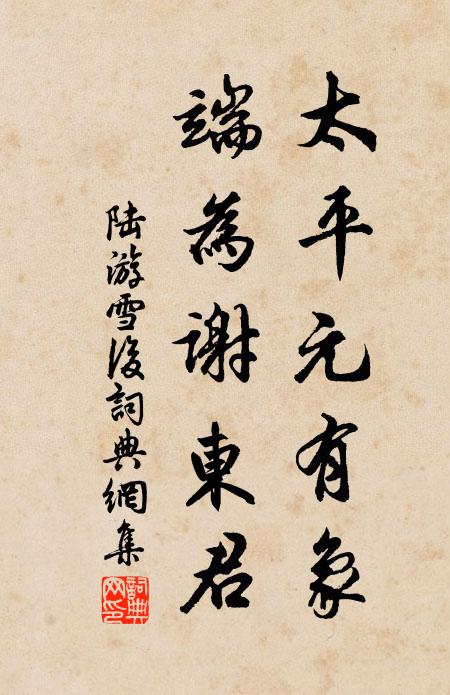 太平元有象
端為謝東君
陆游雪後詞典網集
詞典网印